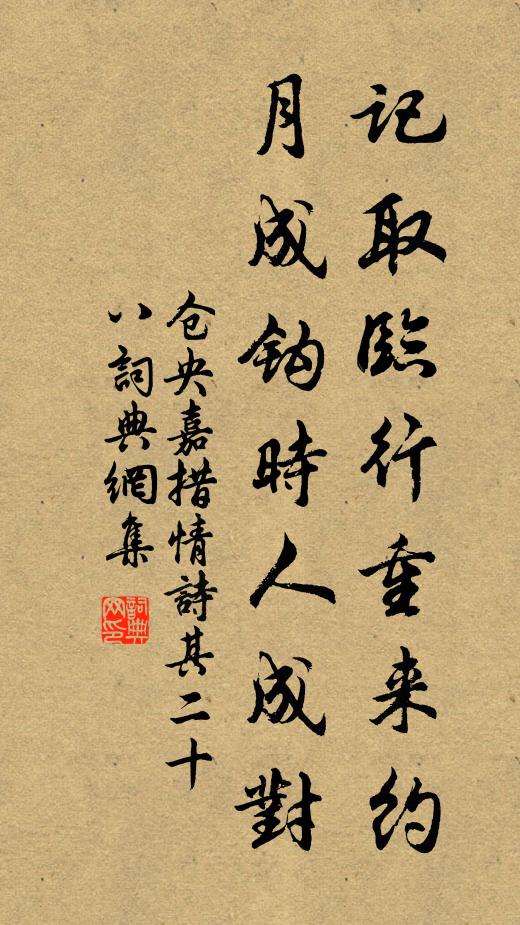 记取臨行重来约
月成钩時人成對
仓央嘉措情詩其二十
八詞典網集
詞典
网印